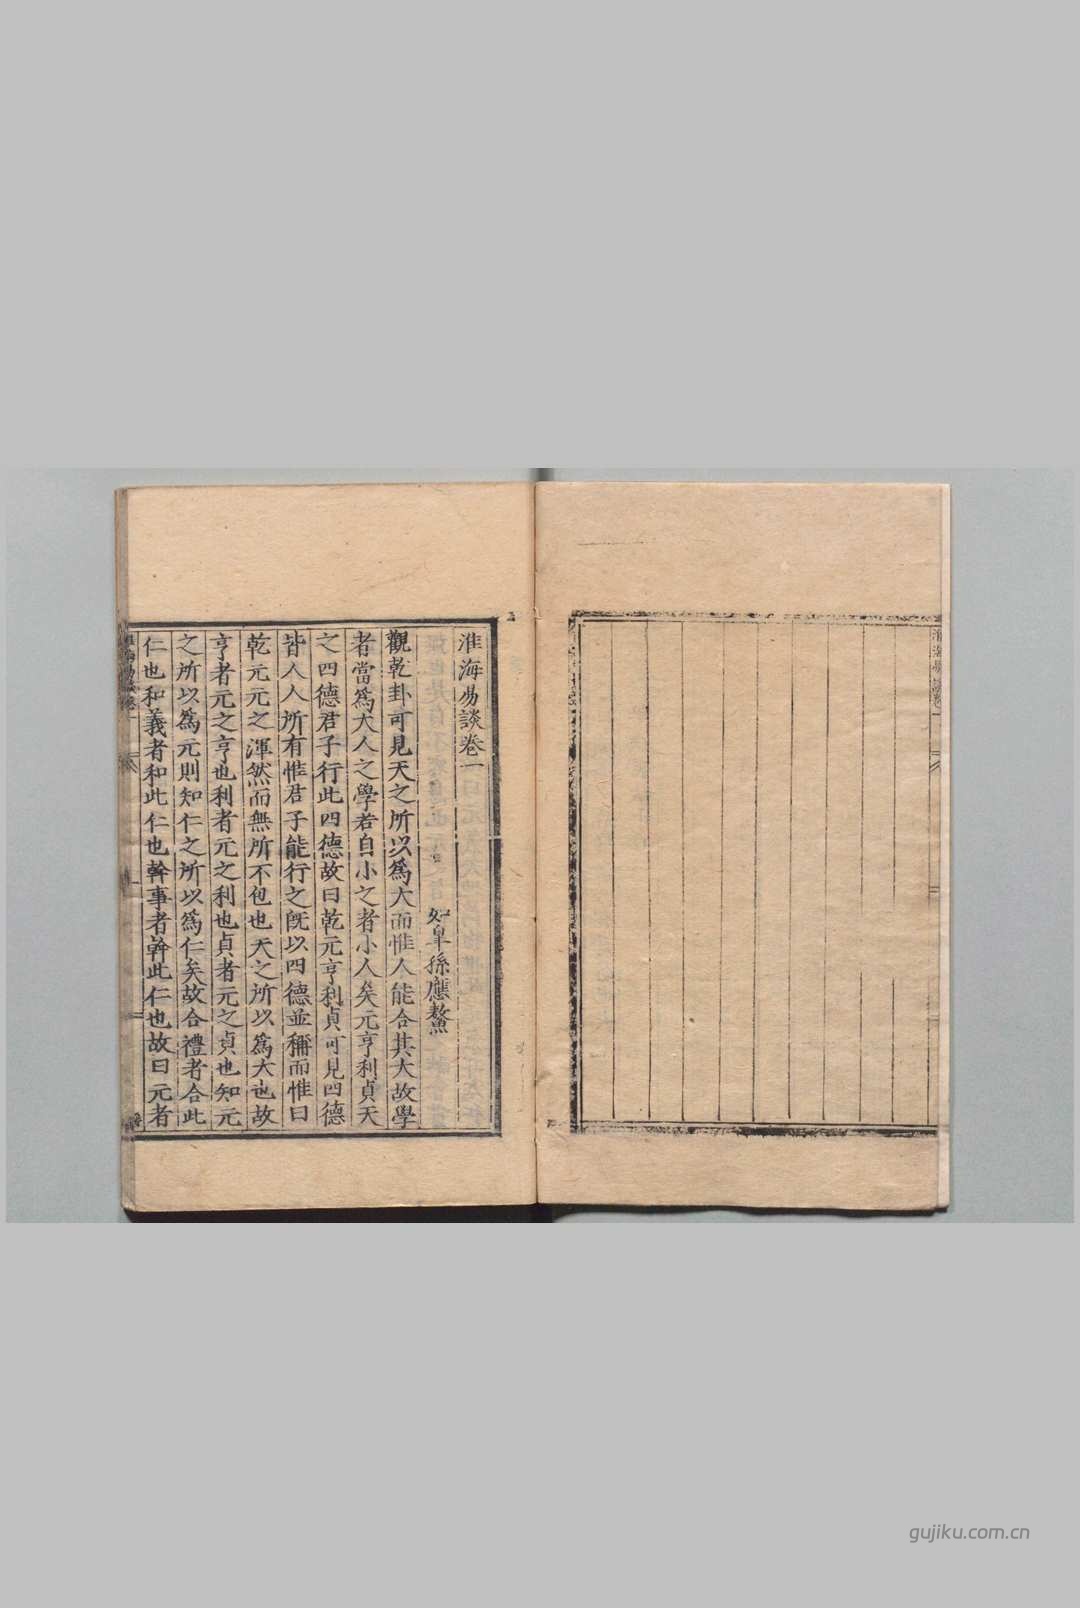 淮海易談卷一
如皐孫應鰲
觀乾卦可見天之所以爲大而惟人能合其大故學
者當爲大人之學若自小之者小人矣元亨利貞天
之四德君子行此四德故曰乾元亨利貞可見四德
皆人人所有惟君子能行之旣以四德並稱而惟曰
乾元元之渾然而無所不包也天之所以爲大也故
亨者元之亨也利者元之利也貞者元之貞也知元
之所以爲元則知仁之所以爲仁矣故合禮者合此
仁也和義者和此仁也幹事者幹此仁也故曰元者
gujiku.com.cn